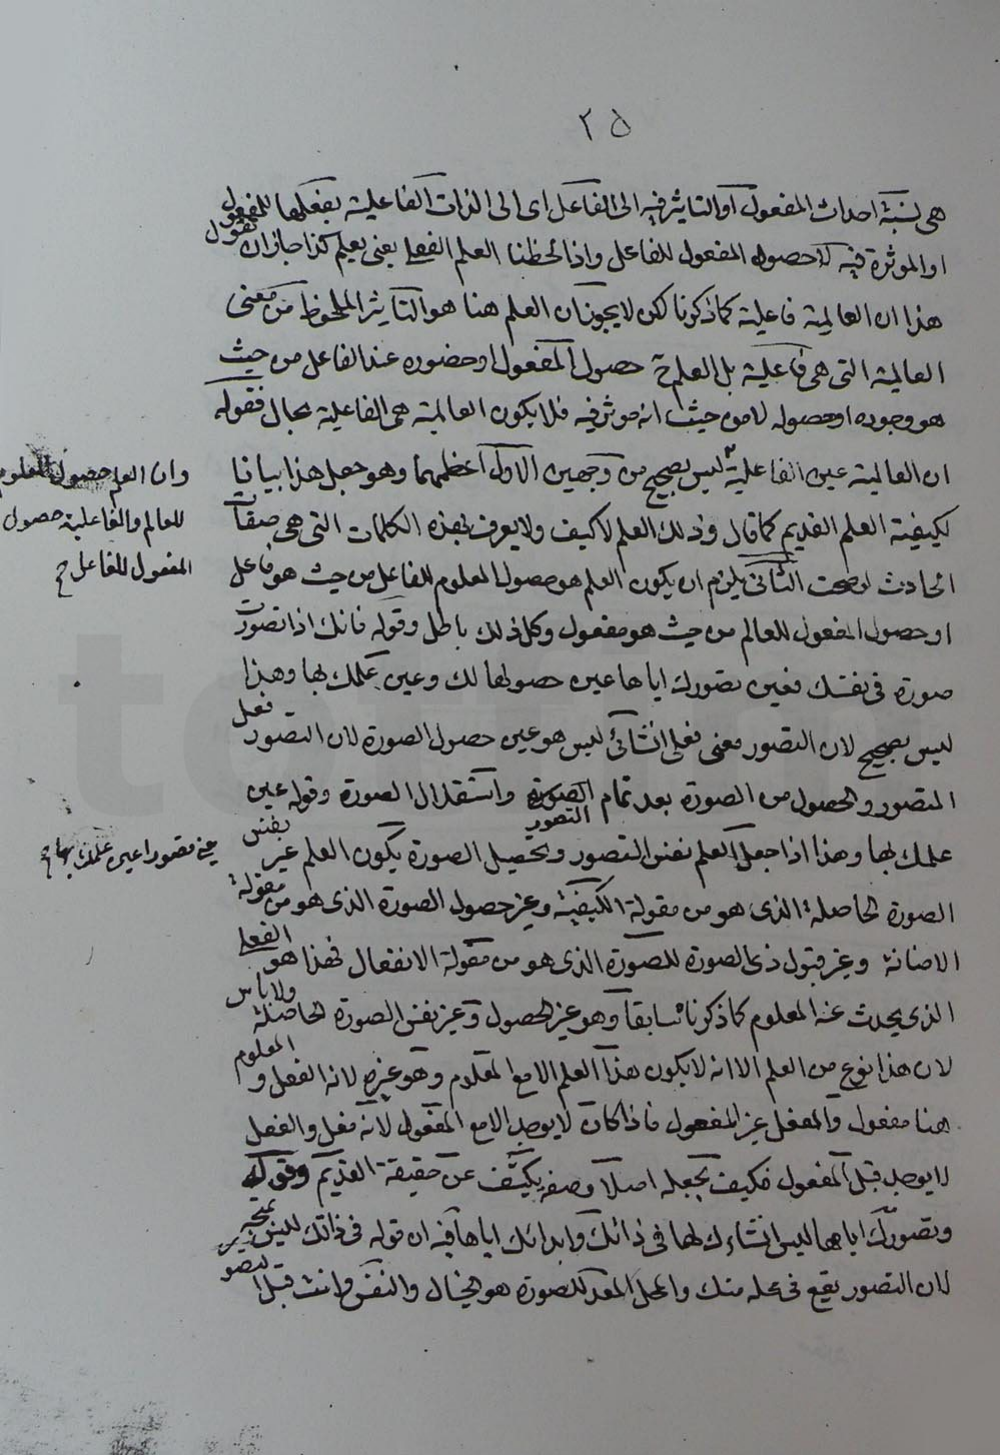 ٢٥
هى نسبة احداث المفعول او التاثير فيه الى الفاعل اى الى الذات الفاعلية بفعلها للمفعول
او الموثرة فيه لا حصول المفعول للفاعل واذا لحظنا العلم الفعلى يعنى يعلم كذا جاز ان نقول
هذا ان العالمية فاعلية كما ذكرنا لكن لا يجوز ان العلم هنا هو التأثير الملحوظ من معنى
العالمية التى هى فاعلية بل العلم ح حصول المفعول او حضوره عند الفاعل من حيث
هو وجوده او حصوله لا من حيث انه موثر فيه فلا يكون العالمية هى الفاعلية بحال فقوله
ان العالمية عين الفاعلية ليس بصحيح من وجهين الاول اعظمهما وهو جعل هذا بيانا
لكيفية العلم القديم كما قال وذلك العلم لا كيف ولا يعرف بهذه الكلمات التى هى صفات
الحادث لو صحت الثانى يلزم ان يكون العلم هو حصول المعلوم للفاعل من حيث هو فاعل
او حصول المفعول للعالم من حيث هو مفعول وكل ذلك باطل وقوله فانك اذا تصورت
صورة فى نفسك فعين تصورك اياها عين حصولها لك وعين علمك بها وهذا
ليس بصحيح لان التصور معنى فعلى انشائى ليس هو عين حصول الصورة لان التصور فعل
المتصور والحصول من الصورة بعد تمام التصور واستقلال الصورة وقوله عين
علمك بها وهذا اذا جعل العلم نفس التصور وتحصيل الصورة يكون العلم غير نفس
الصورة الحاصلة الذى هو من مقولة الكيفية وغير حصول الصورة الذى هو من مقولة
الاضافة وغير قبول ذى الصورة للصورة الذى هو من مقولة الانفعال فهذا هو الفعلى
الذى يحدث عنه المعلوم كما ذكرنا سابقا وهو غير الحصول وغير نفس الصورة الحاصلة ولا باس
لان هذا نوع من العلم الا انه لا يكون هذا العلم الا مع المعلوم وهو غيره لانه الفعل و المعلوم
هنا مفعول والفعل غير المفعول فاذا كان لا يوجد الا مع المفعول لانه فعل والفعل
لا يوجد قبل المفعول فكيف تجعله اصلا وصفه يكشف عن حقيقة القديم وقوله
وتصورك اياها ليس انشاءك لها فى ذاتك وابدائك اياها فيه ان قوله فى ذاتك ليس
لان التصور يقع فى محله منك والمحل المعد للصورة هو الخيال والنفس وانت قبل التصو
وان العلم حصول المعلوم
للعالم والفاعلية حصول
المفعول للفاعل